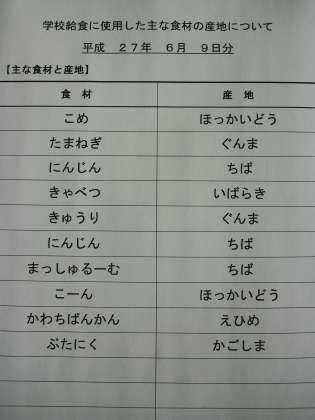 学校給食に使用した主な食材の産地について
平成 27年 6月 9日分
【主な食材と産地】
食 材 産 地
こめ ほっかいどう
たまねぎ ぐんま
にんじん ちば
きゃべつ いばらき
きゅうり ぐんま
にんじん ちば
まっしゅるーむ ちば
こーん ほっかいどう
かわちばんかん えひめ
ぶたにく かごしま